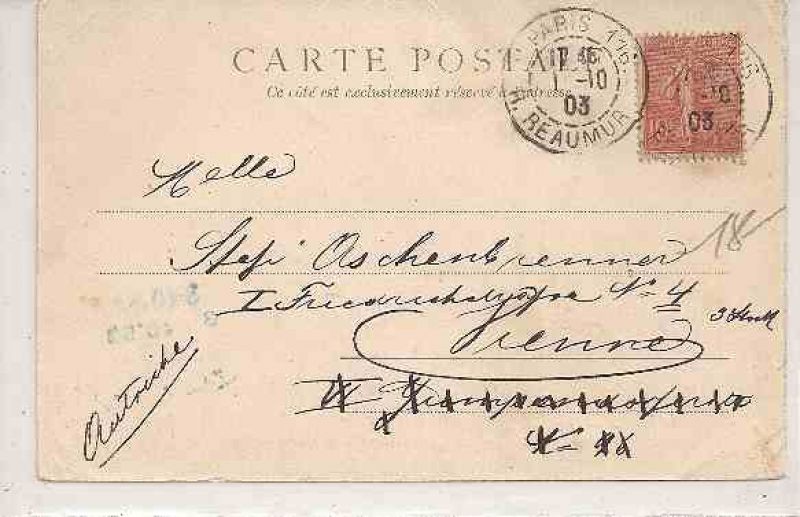 CARTE POSTALE
Ce côté est exclusivement réservé à l'adresse
PARIS 116
17 45
1 -10
03
R. REAUMUR
116
-10
03
18
Melle
Stefi Aschenbrenner
I Friedrichstrasse No 4
3 Stock
Vienne
Autriche
IV
No